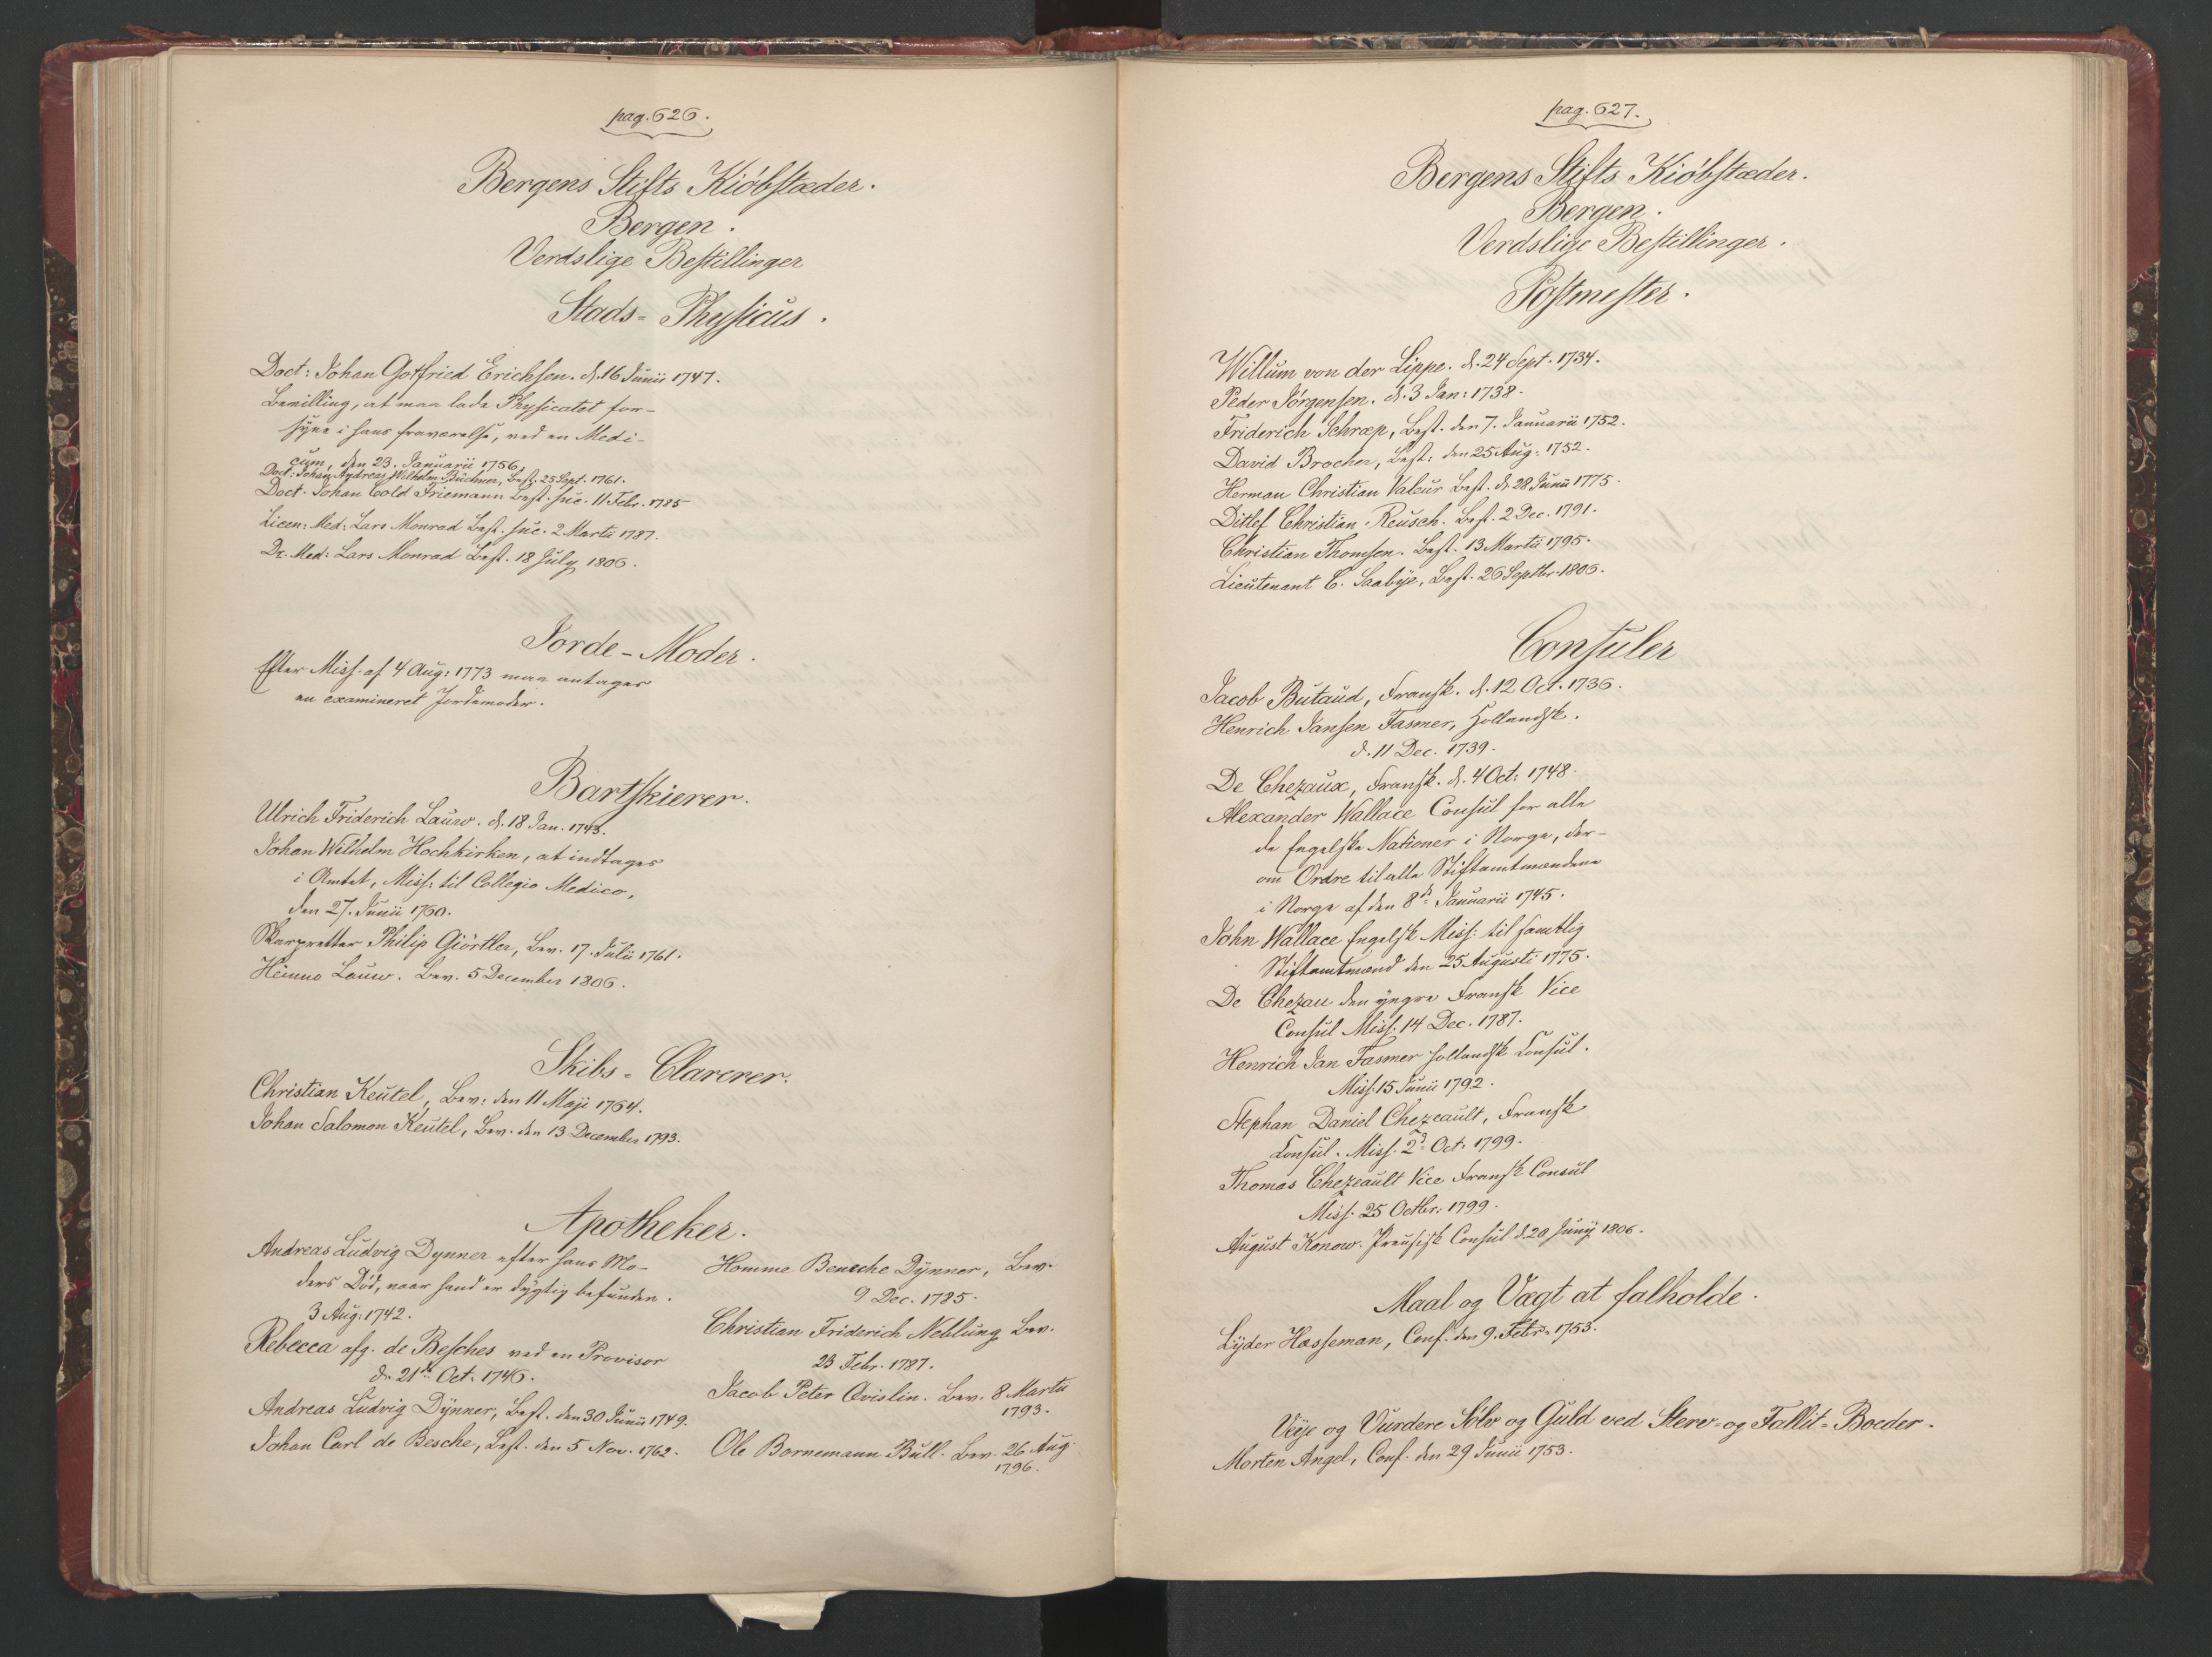 pag. 626.
Bergens Stifts Kiöbstæder.
Bergen.
Verdslige Bestillinger
Stads-Physicus.
Doct: Johan Gotfried Erichsen. d. 16 Junii 1747.
Bevilling, at maa lade Physicatet for-
syne i hans fraværelse, ved en Medi-
cum, den 23. Januarii 1756.
Doct: Johan Andreas Wilhelm Büchner, Best. 25 Sept. 1761.
Doct. Johan Cold Friemann Best. suc. 11 Febr. 1785
Licen: Med: Lars Monrad Best. suc. 2 Martii 1787.
Dr. Med: Lars Monrad Best. 18 July 1806.
Jorde-Moder.
Efter Miss. af 4 Aug: 1773 maa antages
en examineret Jordemoder.
Bartskierer.
Ulrich Friderich Lauw. d. 18 Jan. 1743.
Johan Wilhelm Hochkirken, at indtages
i Amtet, Miss: til Collegio Medico,
den 27. Junii 1760.
Skarpretter Philip Giörtler, Bev. 17. Julii 1761.
Lauw. Bev. 5 December 1806.
Skibs-Clarerer.
Christian Keutel, Bev: den 11 Maji 1764.
Johan Salomon Keutel, Bev. den 13 December 1793.
Apotheker.
Andreas Ludvig Dynner efter hans Mo-
ders Död, naar hand er dygtig befunden.
3 Aug: 1742.
Rebecca afg. de Besches ved en Provisor
d. 21de Oct. 1746.
Andreas Ludvig Dynner, Best. den 30 Junii 1749.
Johan Carl de Besche, Best. den 5 Nov. 1762.
Homme Dynner, Bev.
9 Dec. 1785.
Christian Friderich Neblung Bev.
23 Febr. 1787.
Jacob Peter Qvislin. Bev. 8 Martii
1793.
Ole Bornemann Bull. Bev. 26 Aug
1796.
pag. 627.
Bergens Stifts Kiöbstæder.
Bergen.
Verdslige Bestillinger.
Postmester.
Willum von der Lippe. d. 24 Sept. 1734.
Peder Jörgensen. d. 3 Jan: 1738.
Friderich Schræp, Best. den 7. Januarii 1752.
David Brocher, Best: den 25 Aug: 1752.
Herman Christian Valeur Best. d. 28 Junii 1775.
Ditlef Christian Reusch. Best. 2 Dec. 1791.
Christian Thomsen. Best. 13 Martii 1795.
Lieutenant C. Saabye, Best. 26 Septbr. 1806.
Consuler
Jacob Butaud, Fransk. d. 12 Oct. 1736.
Henrich Jansen Fasmer, Hollandsk.
d. 11 Dec. 1739.
De Chezaux, Fransk. d. 4 Oct: 1748.
Alexander Wallace Consul for alle
de Engelske Nationer i Norge, der-
om Ordre til alle Stiftamtmændene
i Norge af den 8de Januarii 1745.
John Wallace Engelsk Miss: til samtlig
Stiftamtmænd den 25 Augusti 1775.
De Chezau den yngre Fransk Vice
Consul Miss. 14 Dec. 1787.
Henrich Jan Fasmer Hollandsk Consul.
Miss. 15 Junii 1792.
Stephan Daniel Chezeault, Fransk
Consul. Miss. 2d Oct. 1799.
Thomas Chezeault Vice Fransk Consul
Miss. 25 Octbr. 1799.
August Konow. Preusisk Consul d. 20 Junij 1806.
Maal og Vægt at falholde.
Lyder Hasseman, Conf. den 9. Febr. 1753.
Veije og Vurdere Sölv og Guld ved Sterv- og Fallit-Boeder.
Morten Angel, Conf. den 29 Junii 1753.